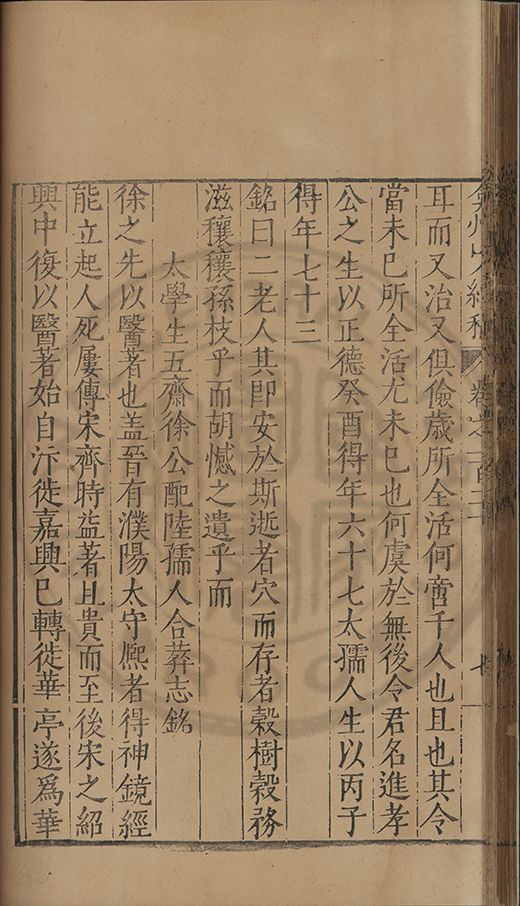 弇州山人續稿 卷之一百二十
耳而又治又俱儉歲所全活何啻千人也且也其令
當未已所全活尤未已也何虞於無後令君名進孝
公之生以正德癸酉得年六十七太孺人生以丙子
得年七十三
銘曰二老人其即安於斯逝者穴而存者穀樹穀務
滋穰穰孫枝乎而胡憾之遺乎而
太學生五齋徐公配陸孺人合葬志銘
徐之先以醫著也盖晉有濮陽太守熈者得神鏡經
能立起人死屢傳宋齊時益著且貴而至後宋之紹
興中復以醫著始自汴徙嘉興已轉徙華亭遂爲華